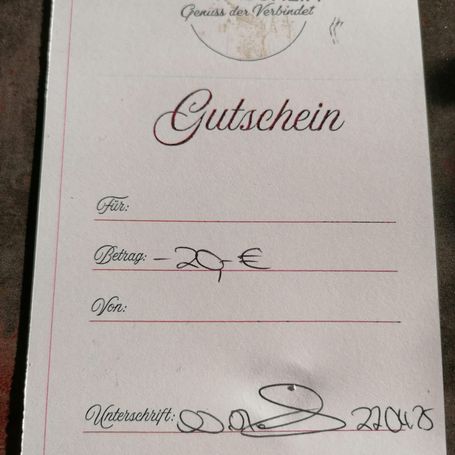 Genuss der Verbindet
Gutschein
Für:
Betrag: - 20,- €
Von:
Unterschrift: 22.04.25